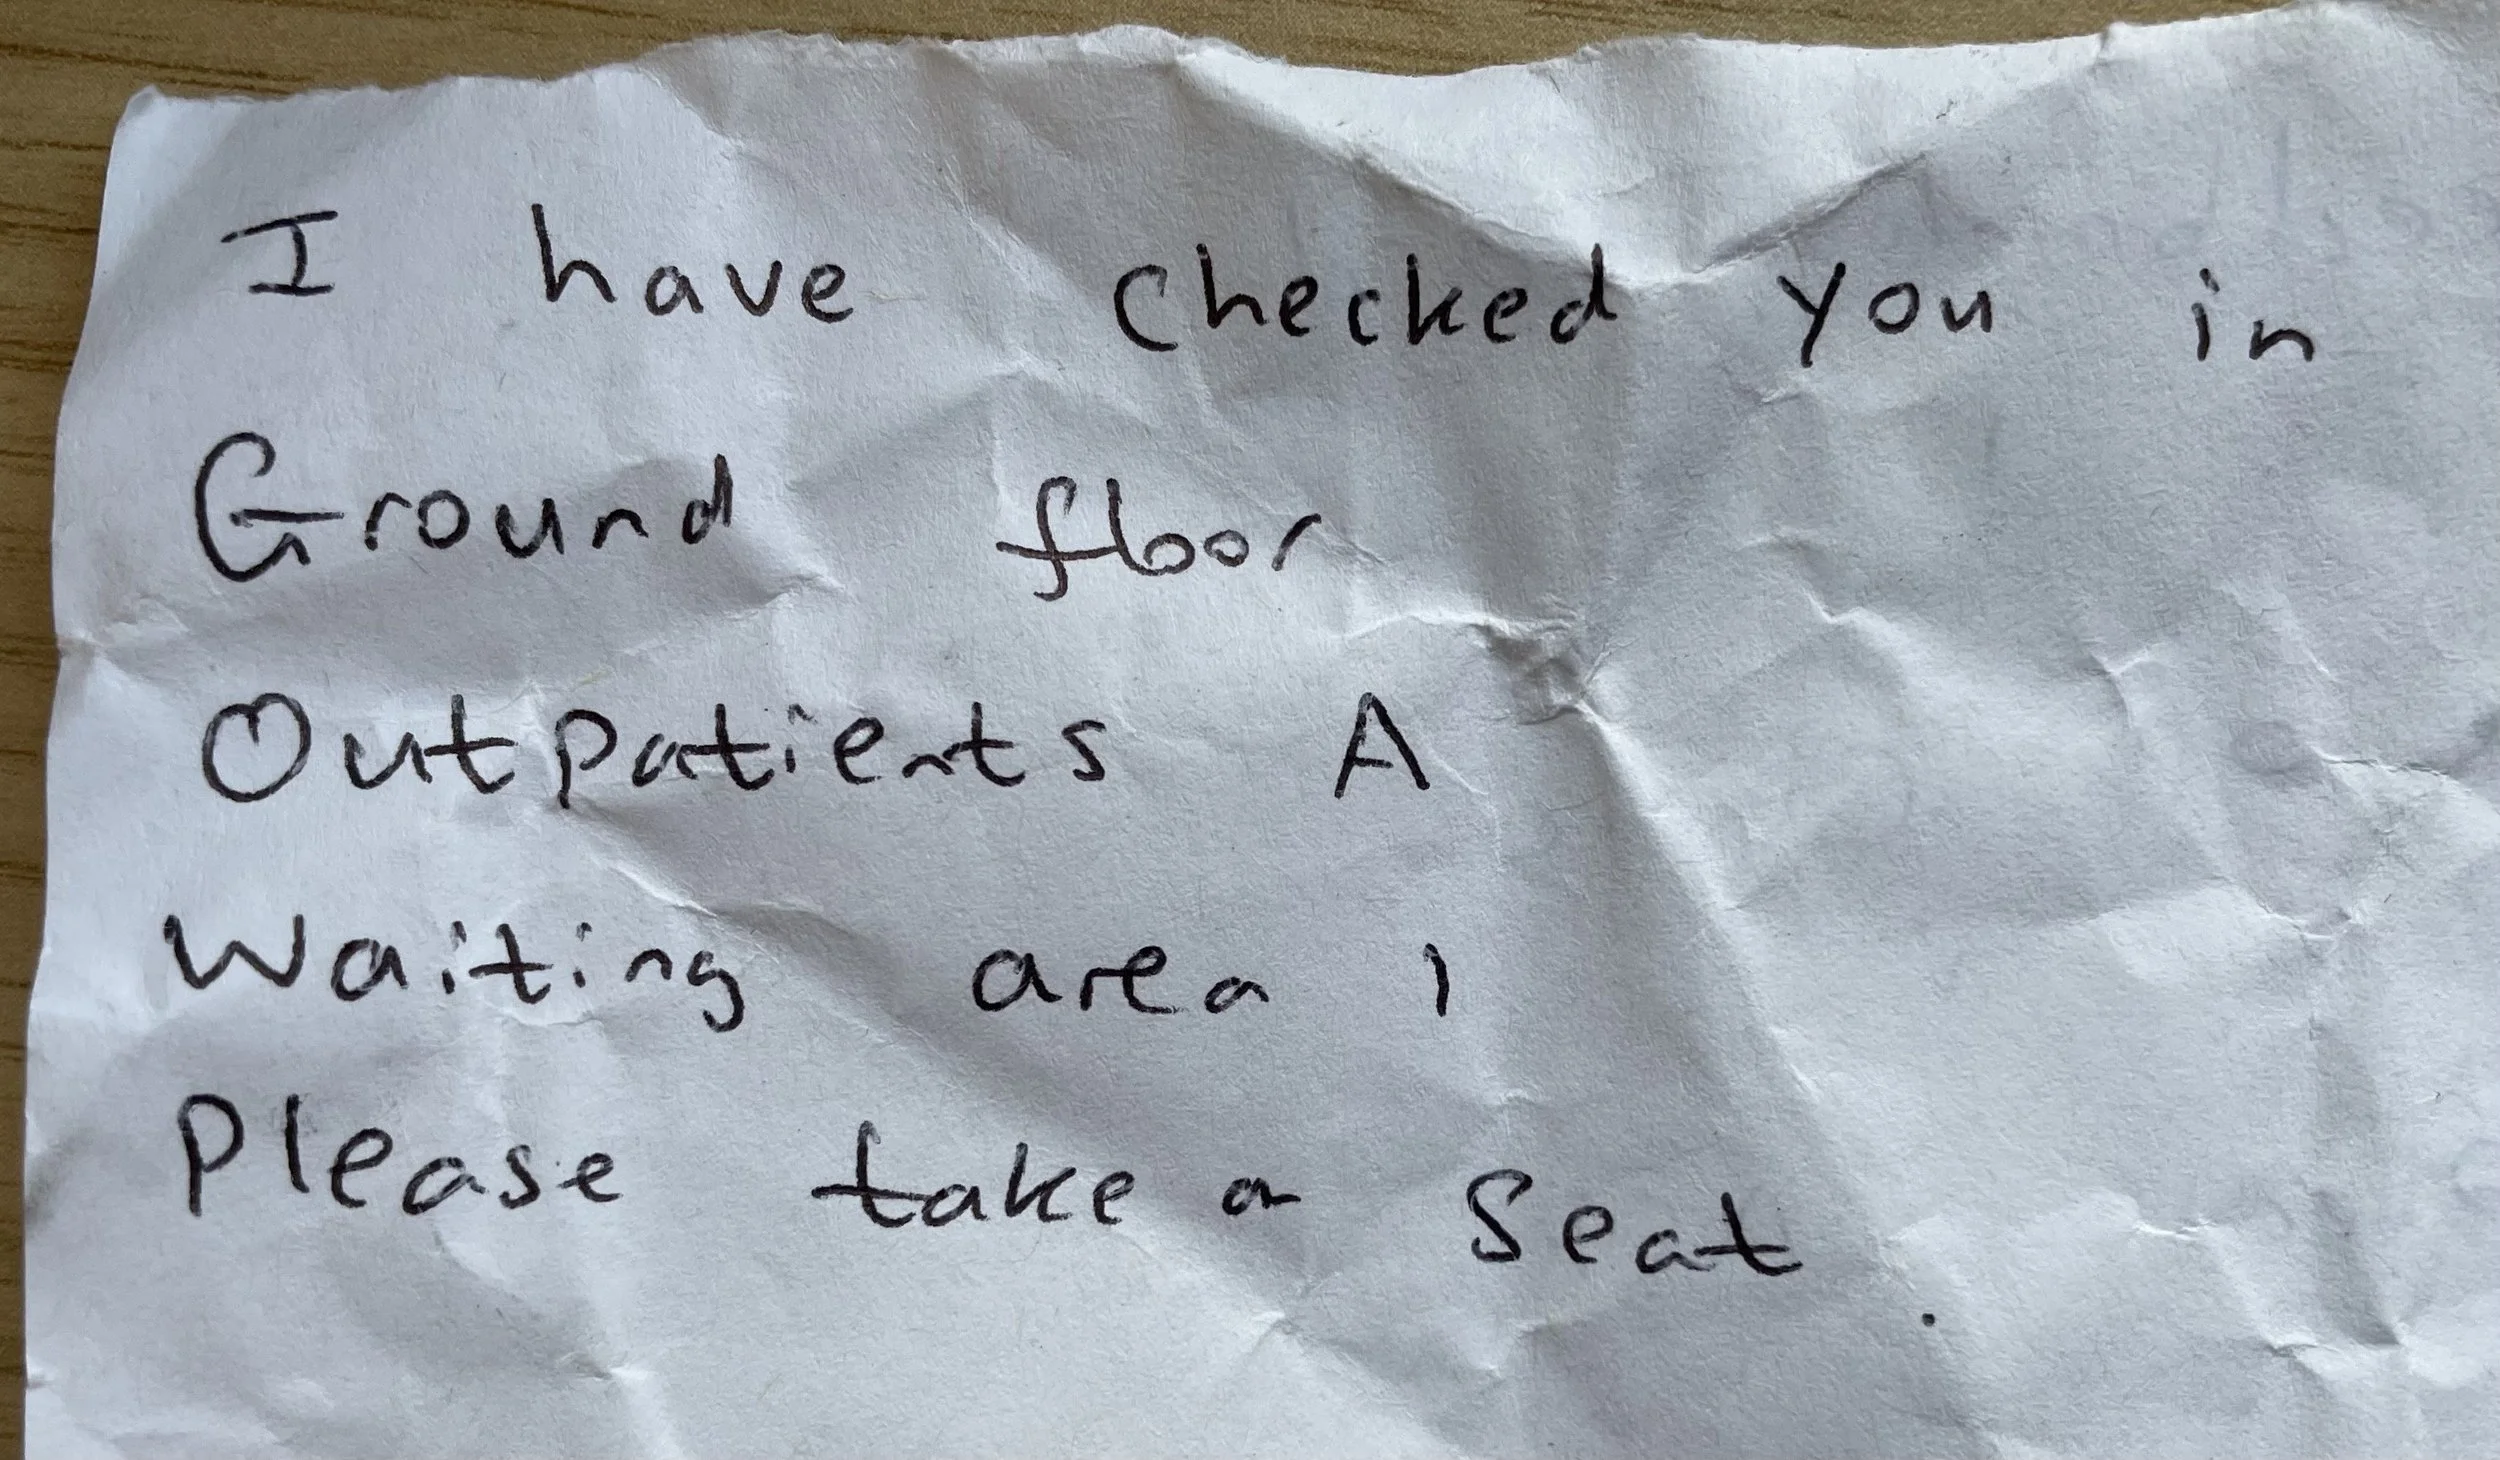 I have checked you in
Ground floor
Outpatients A
Waiting area 1
Please take a seat.